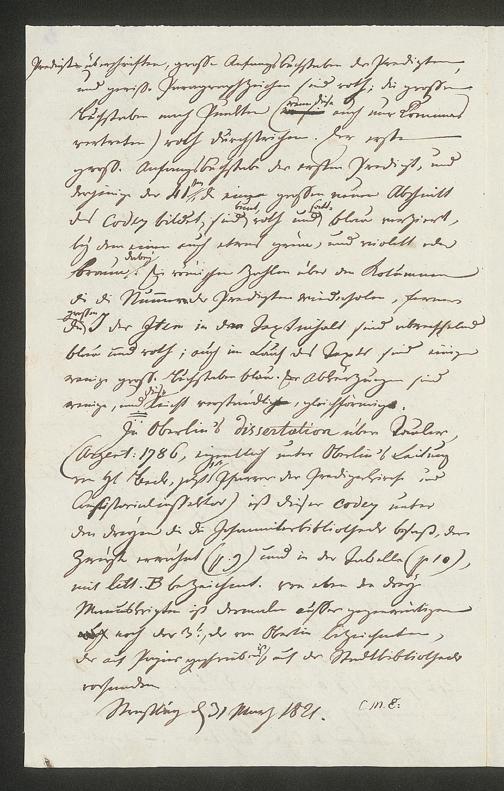 Predigtüberschriften, große Anfangsbuchstaben der Predigten,
und gewiße Paragraphzeichen sind roth; die großen
Buchstaben nach Punkten (wenn diese auch nur Kommas
vertreten) roth durchstrichen. Der erste
große Anfangsbuchstabe der ersten Predigt, und
derjenige der 41ten, die einen großen neuen Abschnitt
des Codex bildet, sind bunt, roth und blau verziert,
bey dem einen auch etwas grün, und violett oder
braun dabey. Die römischen Zahlen über den Kolumnen
die die Nummer der Predigten wiederholen, ferner
die großen I der Item in dem Textinhalt sind abwechselnd
blau und roth; auch im Lauf des Textes sind einige
wenige große Buchstaben blau. Die Abkürzungen sind
wenige, und diese leicht verständlich, gleichförmige.
In Oberlin's dissertation über Tauler,
(Argent: 1786, eigentlich unter Oberlin's Leitung
von Hl. Beck, jetzt Pfarrer der Predigerkirche und
Konsistorialinspektor) ist dieser Codex unter
den dreyen die die Johanniterbibliothek besaß, der
zweyte erwähnt (p. 9) und in der Tabelle (p 10),
mit litt. B bezeichnet. Von eben den drey
Manuskripten ist dermalen außer gegenwärtigem
noch der 3t, de von Oberlin bezeichneten,
der auf Papier geschrieben ist, auf der Stadtbibliothek
vorhanden
Straßburg d 31 März 1821. C.M.E.